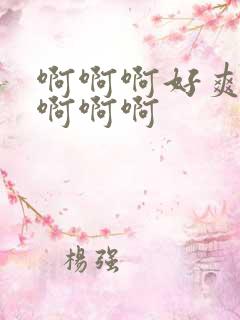 啊啊啊好爽
啊啊啊
楊强